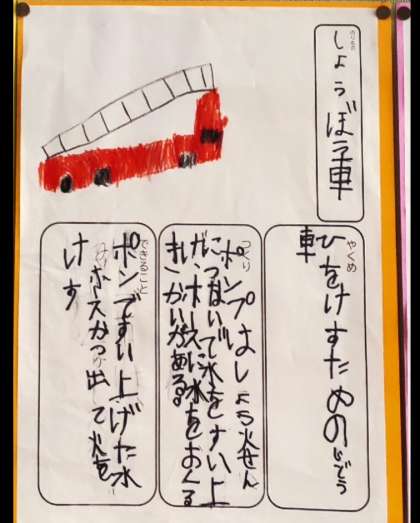 のりもの
しょうぼう車
やくめ
ひをけすための じどう
車
つくり
ポンプはしょう火せん
につないで水をすい上
げ、ホースに水をおくる
きかいがある。
できること
ポンプですい上げた水
をホースから出して火を
けす